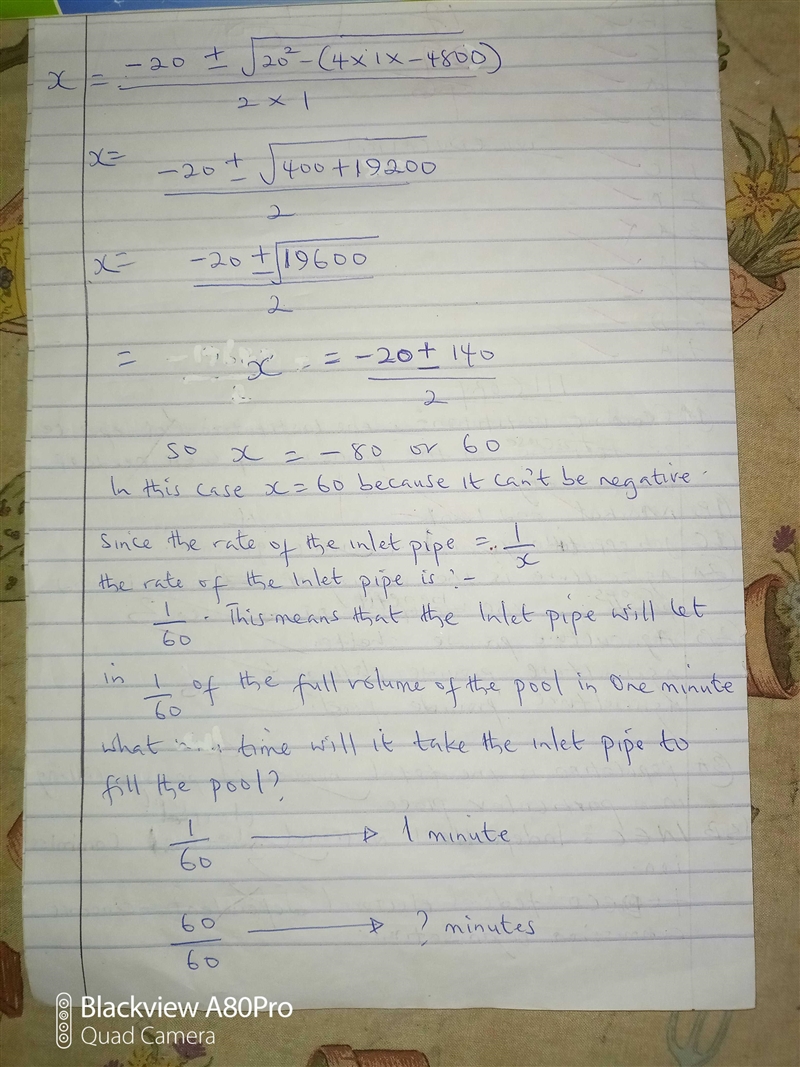 x = -20 ± √20² - (4 x 1 x - 4800)
2 x 1
x = -20 ± √400 + 19200
2
x = -20 ± √19600
2
= x = -20 ± 140
2
so x = -80 or 60
In this case x = 60 because it can't be negative.
Since the rate of the inlet pipe = 1/x
the rate of the Inlet pipe is :-
1/60. This means that the Inlet pipe will let
in 1/60 of the full volume of the pool in One minute
what time will it take the inlet pipe to
fill the pool?
1/60 → 1 minute
60/60 → ? minutes
Blackview A80Pro
Quad Camera